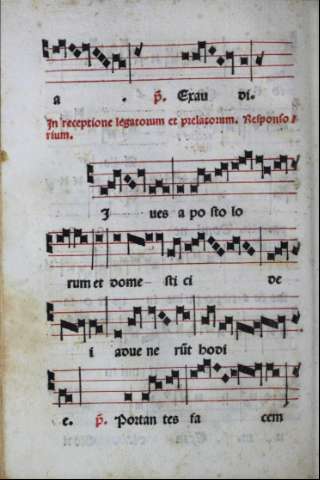 a . p̃. Exau di.
In receptione legatorum et prelatorum. Responso⸗
rium.
I ues a po sto lo
rum et dome sti ci de
i adue ne rūt hodi
e. p̃. Portan tes fa cem